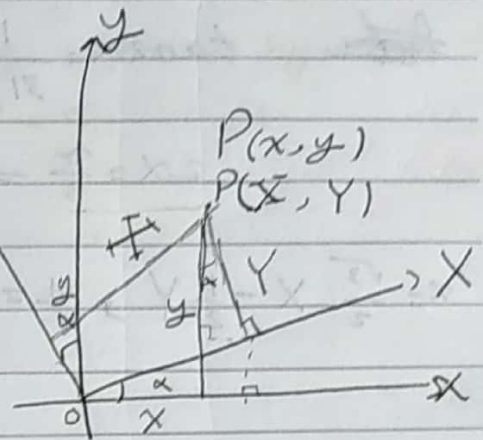 y
P(x, y)
P(X, Y)
X
Y
X
y
α
y
α
α
x
O
x